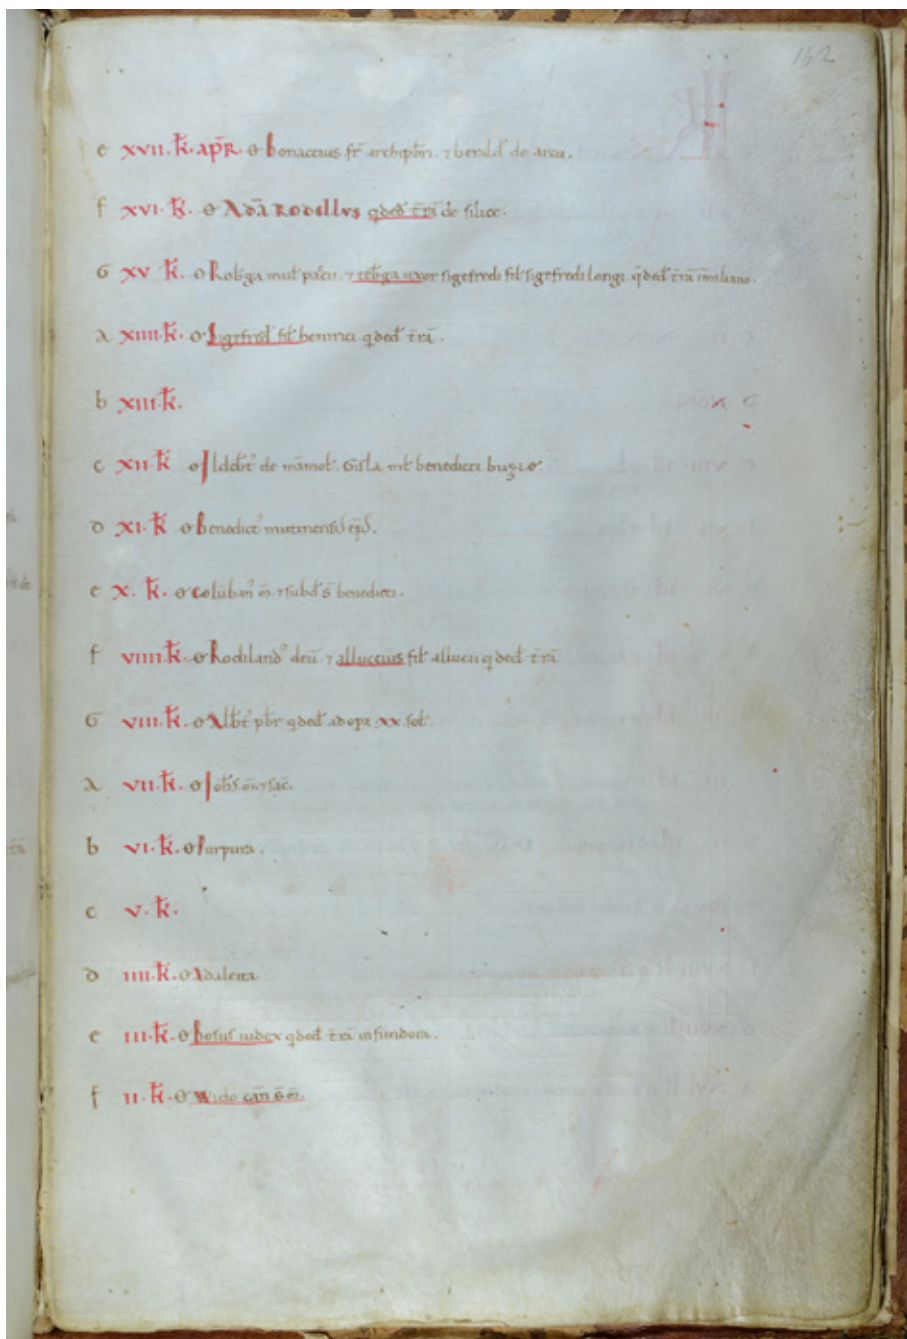 142
e XVII. k̄. APR̄. O Bonaccius fr̄ archip̄bri. ⁊ berald' de arcu.
f XVI. k̄. O ADĀ RODELLVS q̄ ded' t̄rā de silice.
G XV k̄. O Rob̄ga mul' ⁊ uxor sigefredi fil' sigefredi longi. q̄ ded' t̄rā
a XIIII. k̄. O Sigefred' fil' henrici q̄ ded' t̄rā.
b XIII. k̄.
c XII k̄ O Ildeb̄t' de Gisla m̄t' benedicti
d XI. k̄ O Benedict' mutinensis ep̄s.
e X. k̄. O Colūban' m̄. ⁊ subd' s̄ benedicti.
f VIIII. k̄. O Rochland' ⁊ alluccius fil' allucii q̄ ded' t̄rā
G VIII. k̄. O Alb̄t' p̄br q̄ ded' ad opa XX. sol'.
a VII. k̄. O Ioh̄s. m̄. ⁊ sac̄.
b VI. k̄. O Purpura.
c V. k̄.
d IIII. k̄. O Adaleita
e III. k̄. O Bosus iudex q̄ ded' t̄rā in fundora.
f II. k̄. O Wido